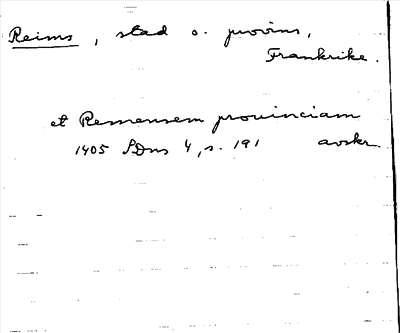 Reims, stad o. provins,
Frankrike.
et Remensem prouinciam
1405 SDns 4, s. 191 avskr.